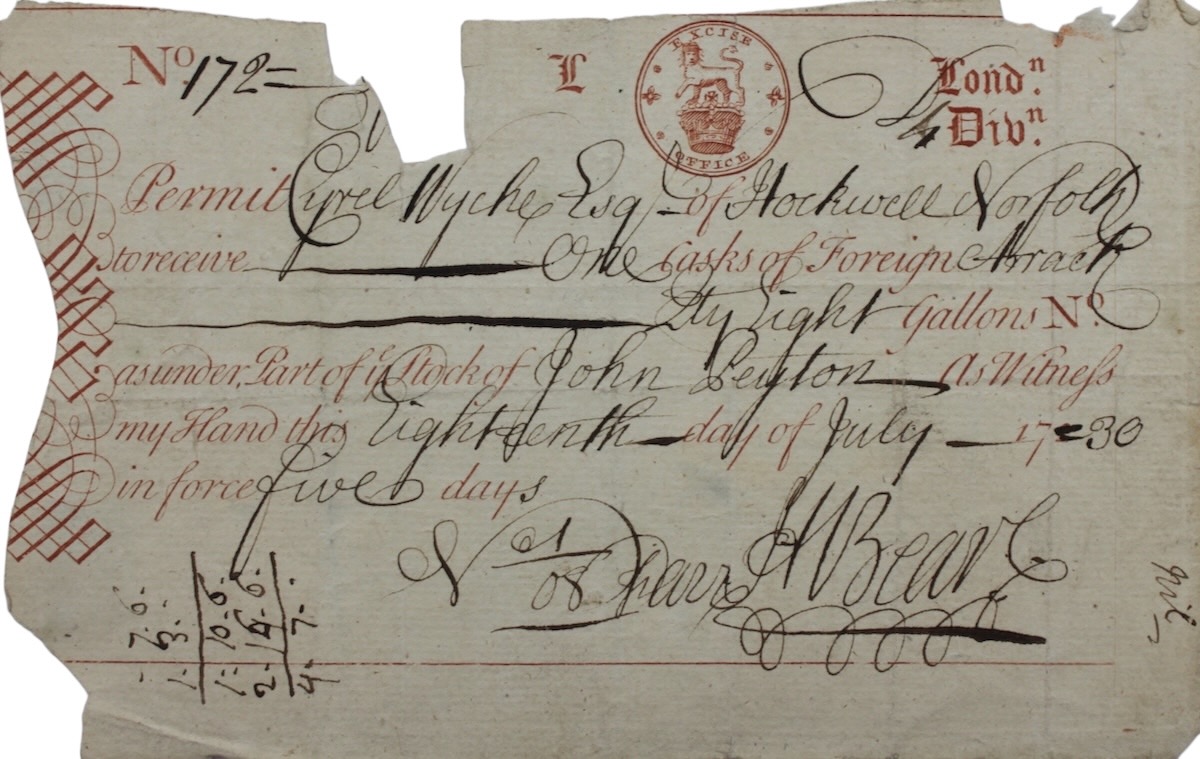 No. 172= L EXCISE OFFICE Londn.
Divn.
Permit Cyril Wyche Esqr of Hockwell Norfolk
to receive One Casks of Foreign Arrack
Eight Gallons No.
as under, Part of ye Stock of John Peyton As Witness
my Hand this Eighteenth day of July 1730
in force five days
N 21/08 HBear
7.6.
1.3.
1:10.6.
2.14.6.
4.7.